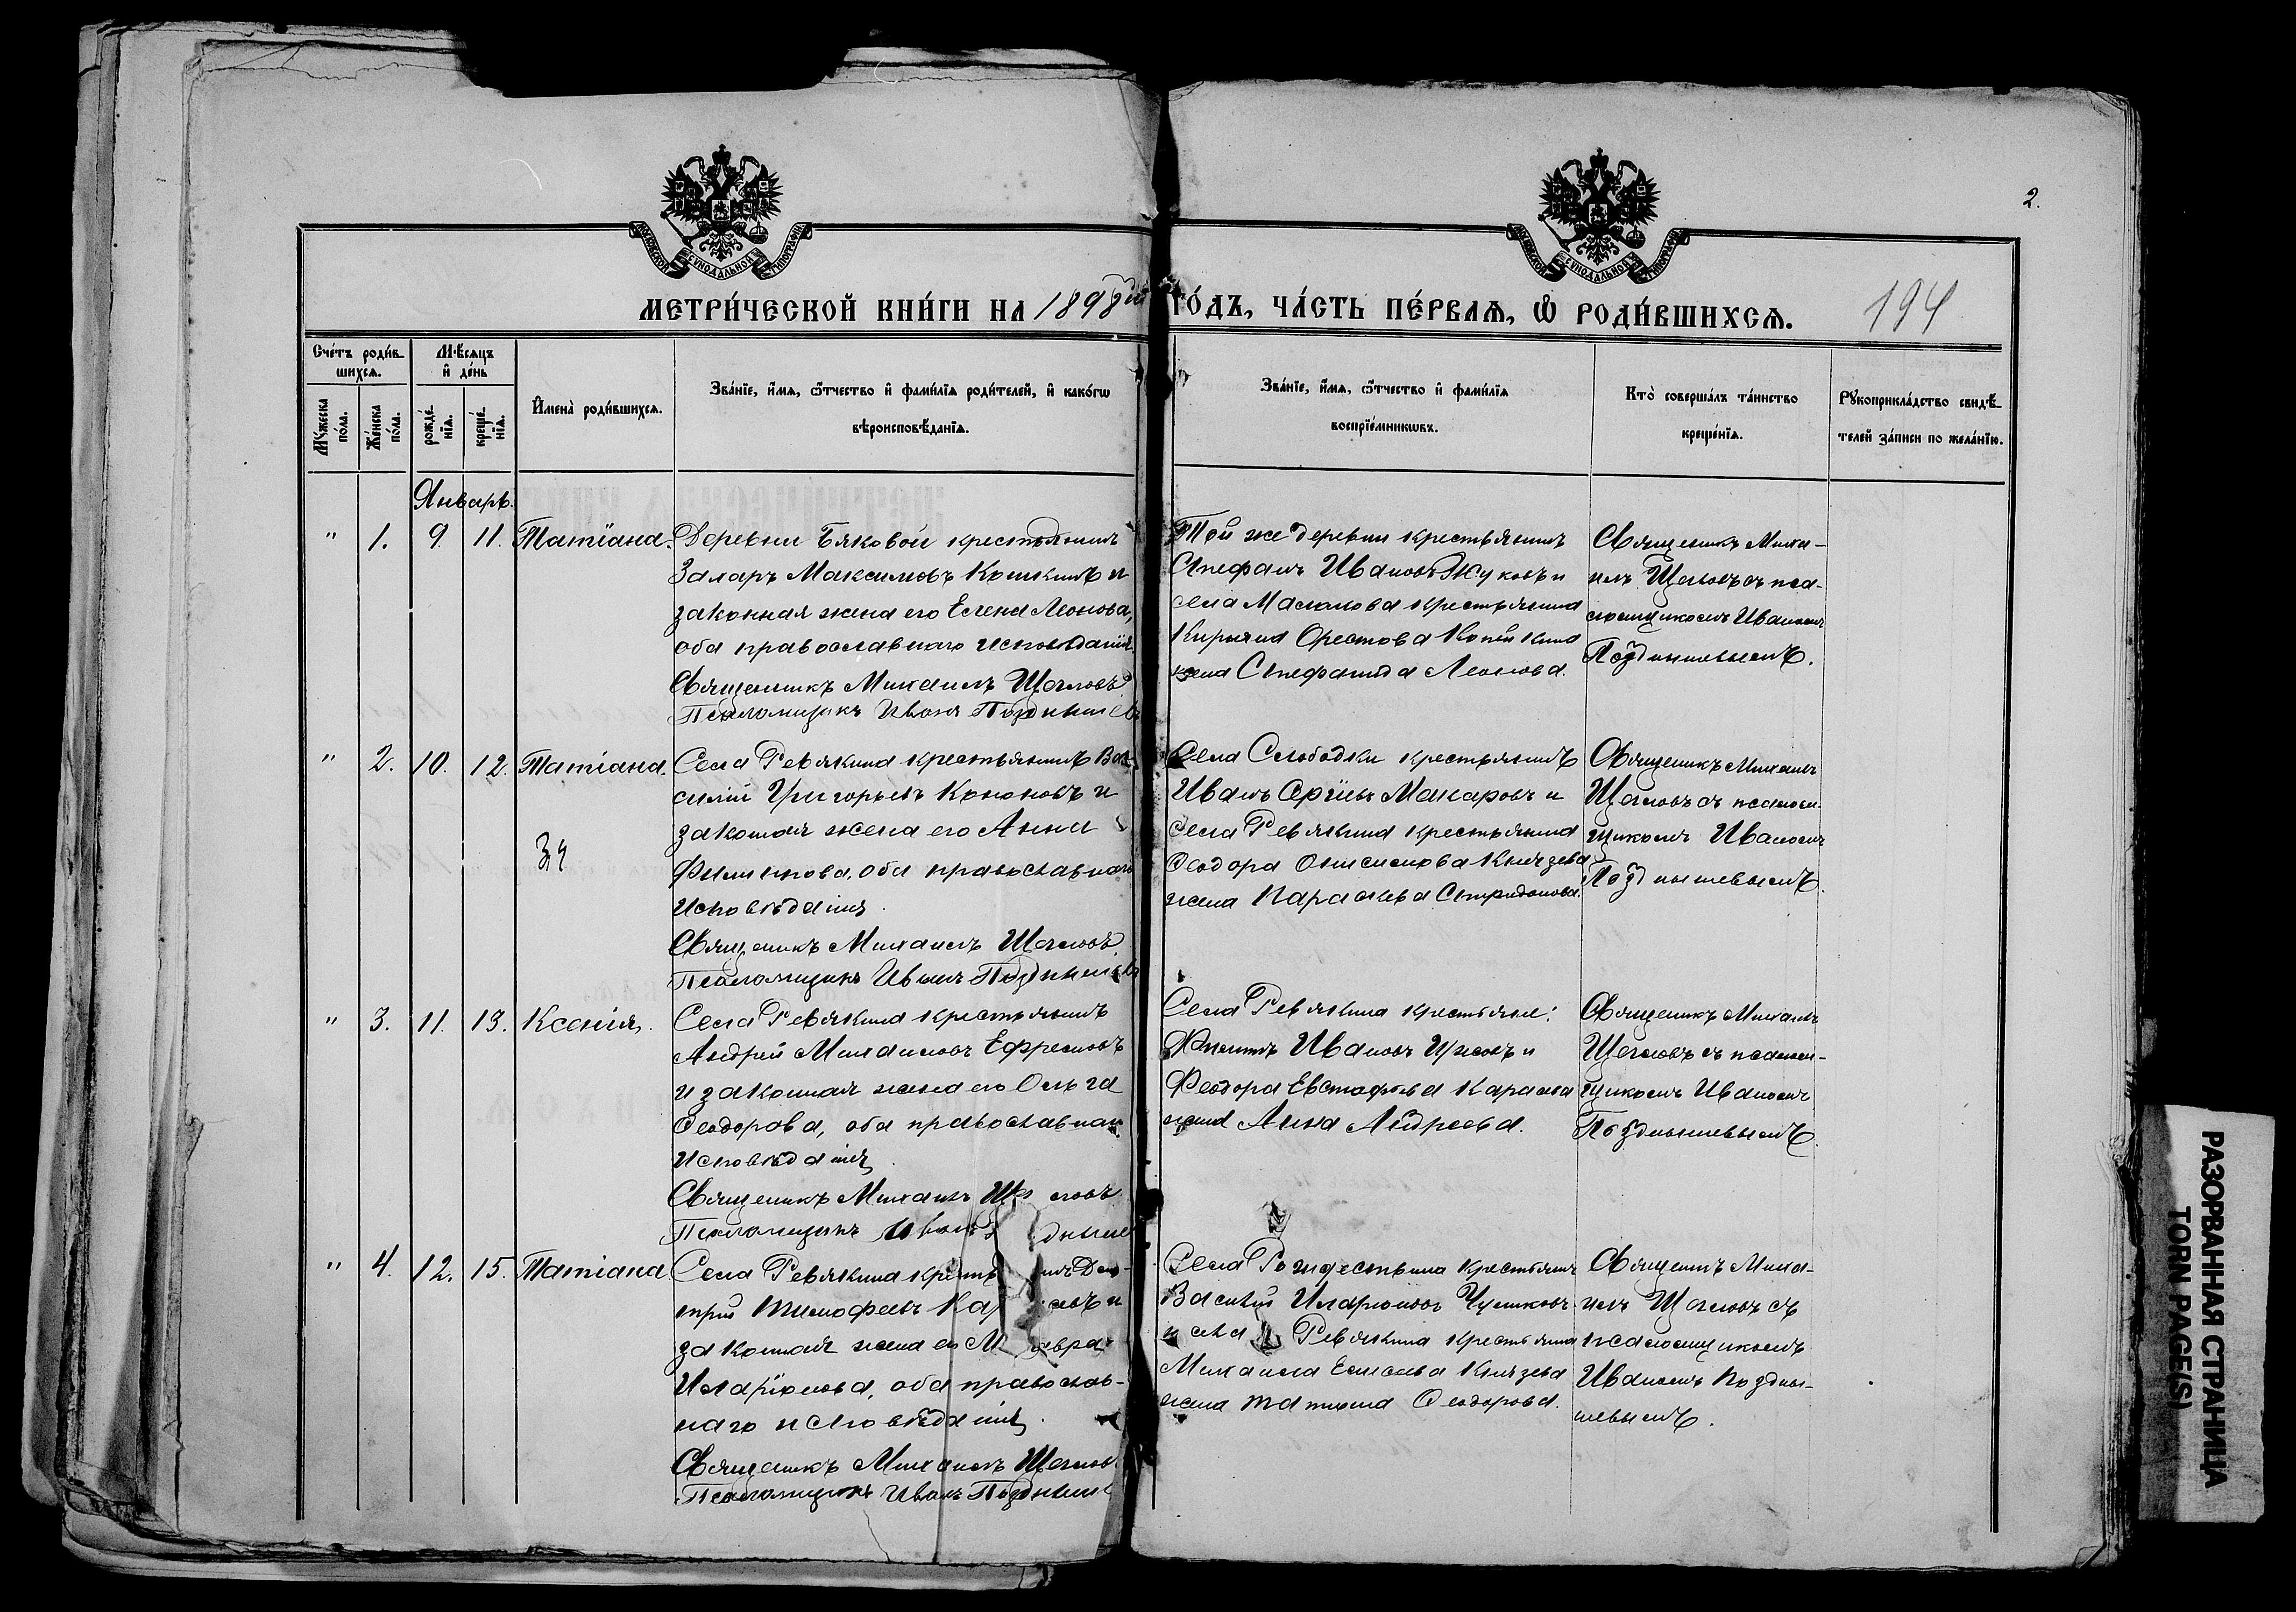 2.
МОСКОВСКОЙ СѴНОДАЛЬНОЙ ТИПОГРАФІИ
МОСКОВСКОЙ СѴНОДАЛЬНОЙ ТИПОГРАФІИ
МЕТРИ́ЧЕСКОЙ КНИ́ГИ НА 1898й ГО́ДЪ, ЧА́СТЬ ПЕ́РВАѦ, Ѡ РОДИ́ВШИХСѦ.
194
Сче́тъ роди́в-
шихсѧ.
Мꙋ́жеска по́ла.
Же́нска по́ла.
Мѣ́сѧцъ
и҆ де́нь
рожде́-нїѧ.
креще́-нїѧ.
И҆мена̀ роди́вшихсѧ.
Зва́нїе, и҆́мѧ, ѻ҆́тчество и҆ фами́лїѧ роди́телей, и҆ како́гѡ
вѣроисповѣ́данїѧ.
Зва́нїе, и҆́мѧ, ѻ҆́тчество и҆ фами́лїѧ
воспрїе́мникѡвъ.
Кто̀ соверша́лъ та́инство
креще́нїѧ.
Рꙋкоприкла́дство свидѣ́-
телей за́писи по жела́нїю.
Январь.
" 1. 9. 11. Татіана.
Деревни Бяковой крестьянинъ
Захаръ Максимовъ Кошкинъ и
законная жена его Елена Леонова,
оба православнаго исповѣданія.
Священникъ Михаилъ Щегловъ
Псаломщикъ Иванъ Позднышевъ
Той же деревни крестьянинъ
Стефанъ Ивановъ Жуковъ и
села крестьянина
Орестова
жена Стефанида Леонова.
Священникъ Миха-
илъ Щегловъ съ пса-
ломщикомъ Иваномъ
Позднышевымъ.
" 2. 10. 12. Татіана.
Села Ревякина крестьянинъ Ва-
силій Григорьевъ Кононовъ и
законная жена его Анна
Филиппова, оба православнаго
исповѣданія
Священникъ Михаилъ Щегловъ.
Псаломщикъ Иванъ Позднышевъ
Села Слободки крестьянинъ
Иванъ Сергіевъ Макаровъ и
села Ревякина крестьянина
Ѳеодора Онисимова Князева
жена Параскева Спиридонова.
Священникъ Михаилъ
Щегловъ съ псалом-
щикомъ Иваномъ
Позднышевымъ.
" 3. 11. 13. Ксенія.
Села Ревякина крестьянинъ
Андрей Михаиловъ Ефремовъ
и законная жена его Ольга
Ѳеодорова, оба православнаго
исповѣданія.
Священникъ Михаилъ Щегловъ
Псаломщикъ Иванъ дныше
Села Ревякина крестьяне:
Филиппъ Ивановъ и
Ѳеодора Евстафьева
жена Анна Андреева.
Священникъ Михаилъ
Щегловъ съ псалом-
щикомъ Иваномъ
Позднышевымъ.
" 4. 12. 15. Татіана.
Села Ревякина крестьянинъ Дми-
трій Тимофеевъ Ка евъ и
законная жена его М авра
Иларіонова, оба православ-
наго исповѣданія.
Священникъ Михаилъ Щегловъ
Псаломщикъ Иванъ Позднышев
Села Рождествина крестьянинъ
Василій Иларіоновъ Чуликовъ
и села Ревякина крестьянина
Михаила Елисеева Князева
жена Татіана Ѳеодорова.
Священникъ Миха-
илъ Щегловъ съ
псаломщикомъ
Иваномъ Поздны-
шевымъ.
РАЗОРВАННАЯ СТРАНИЦА
TORN PAGE(S)